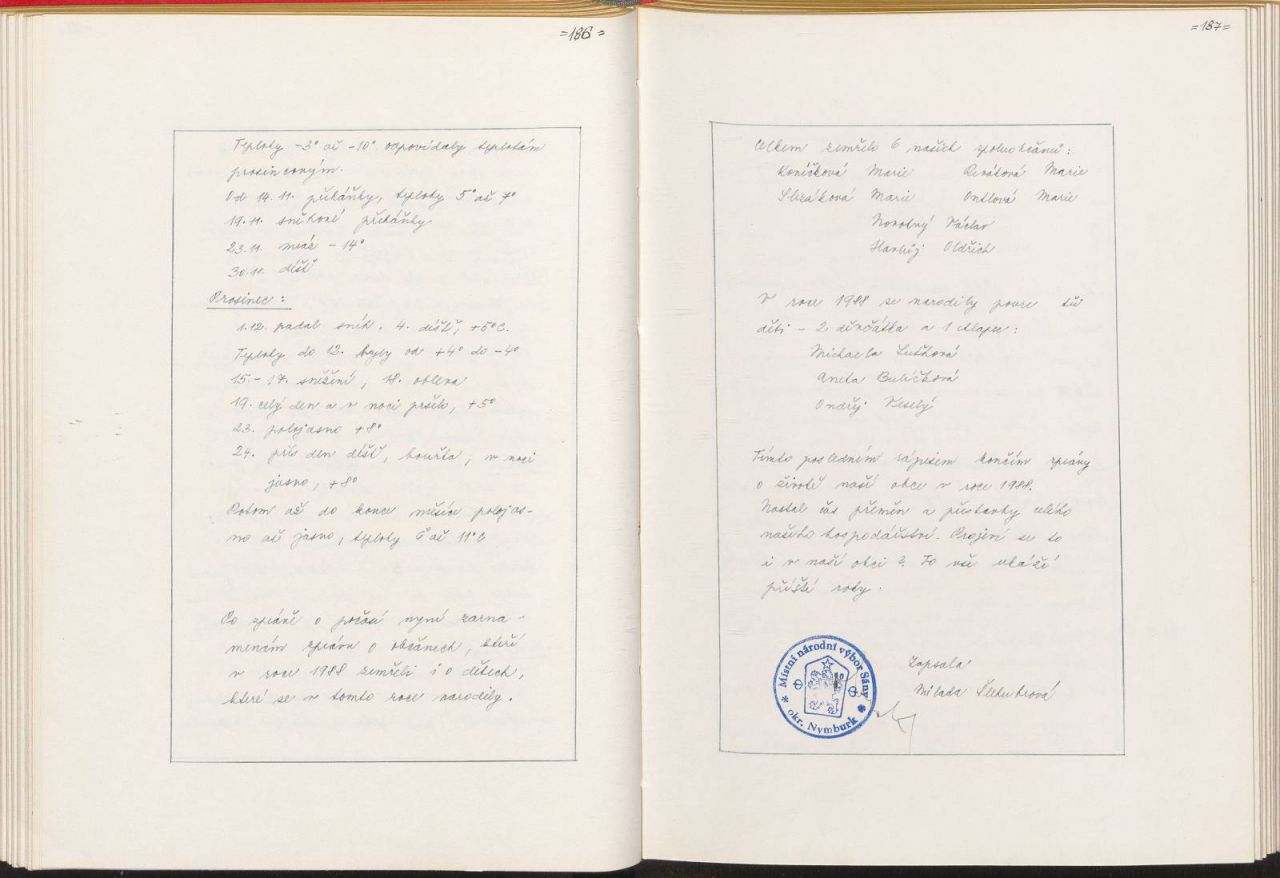 =186=
Teploty -3° až -10° odpovídaly teplotám
prosincovým.
Od 14.11. přeháňky, teploty 5° až 7°
19.11. sněhové přeháňky
23.11. mráz - 14°
30.11. déšť
Prosinec :
1.12. padal sníh. 4. déšť, +5°C.
Teploty do 12. byly od +4° do -4°
15.-17. sněžení, 18. obleva
19. celý den a v noci pršelo, +5°
23. polojasno +8°
24. přes den déšť, bouřka, v noci
jasno, +8°
Potom až do konce měsíce polojas-
no až jasno, teploty 6° až 11°C
Po zprávě o počasí nyní zazna-
menám zprávu o občanech, kteří
v roce 1988 zemřeli i o dětech,
které se v tomto roce narodily.
=187=
Celkem zemřelo 6 našich spoluobčanů:
Koníčková Marie Marie
Slezáková Marie Marie
Novotný Václav
Oldřich
V roce 1988 se narodily pouze tři
děti - 2 děvčátka a 1 chlapec:
Michaela
Aneta Bulíčková
Ondřej Veselý
Tímto posledním zápisem končím zprávy
o životě naší obce v roce 1988.
Nastal čas přeměn a přestavby celého
našeho hospodářství. Projeví se to
i v naší obci ? To vše ukáží
příští roky.
Místní národní výbor Sány
okr. Nymburk
Zapsala
Milada